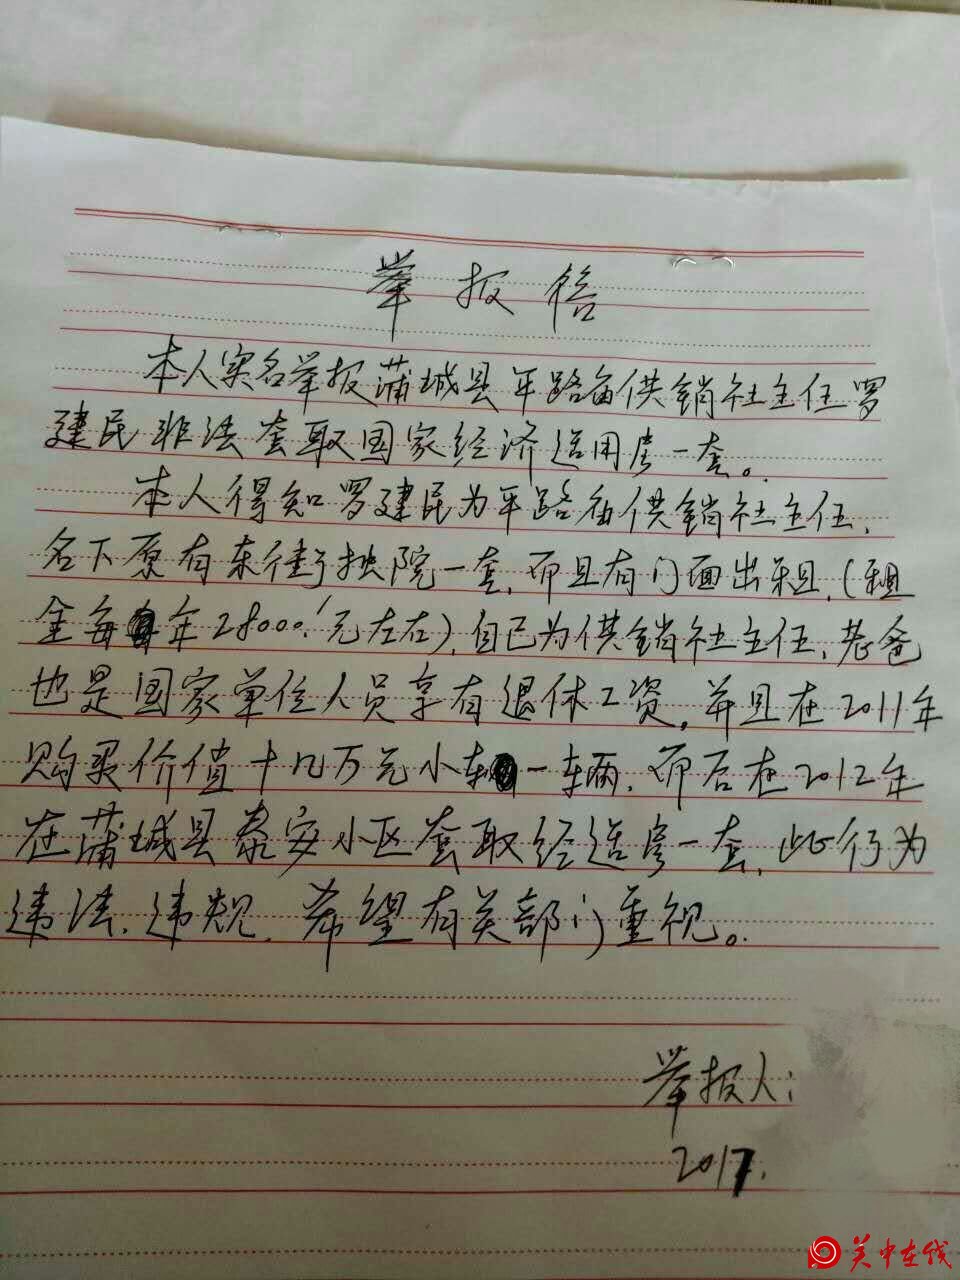 举报信
本人实名举报蒲城县平路庙供销社主任罗
建民非法套取国家经济适用房一套。
本人得知罗建民为平路庙供销社主任,
名下原有东街独院一套,而且有门面出租,(租
金每年28000元左右),自己为供销社主任,老爸
也是国家单位人员享有退休工资,并且在2011年
购买价值十几万元小车一辆,而后在2012年
在蒲城县泰安小区套取经适房一套,此行为
违法,违规,希望有关部门重视。
举报人:
2017.
关中在线